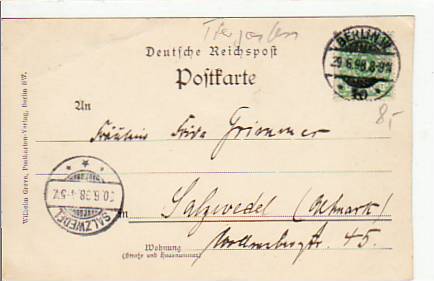 Deutsche Reichspost
Postkarte
BERLIN W.
29.6.98.8-9N
8,-
An
Fräulein Frida Grimmer
in Salzwedel (Altmark)
45.
Wohnung
(Straße und Hausnummer)
SALZWEDEL
30.6.98.4-5N
Wilhelm Greve, Postkarten-Verlag, Berlin SW.